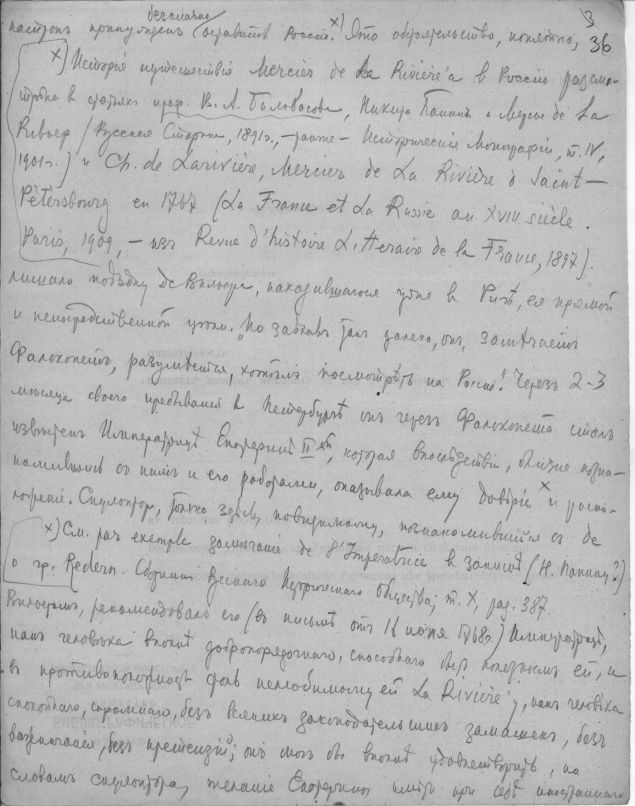 безславно
3
36
настроп принужденъ оставить Россію. x) Это обстоятельство, понятно,
x) Исторія путешествія Mercier de La Rivière'а въ Россію разсмо-
трѣна въ статьяхъ проф. В. А. Бильбасова, Никита Панинъ и Мерсье де Ла
Ривьеръ (Русская Старина, 1891г., – также – Историческія Монографіи, т. IV,
1901г.) и Ch. de Larivière, Mercier de La Rivière à Saint-
Pétersbourg en 1767 (La France et La Russie au XVIII siècle.
Paris, 1909, – изъ Revue d'histoire Litteraire de la France, 1897).
лишало поѣздку де Вильера, находившагося уже въ Ригѣ, ея прямой
и непосредственной цѣли. „Но заѣхавъ такъ далеко, онъ, замѣчаетъ
Фальконетъ, разумѣется, хотѣлъ посмотрѣть на Россію". Черезъ 2-3
мѣсяца своего пребыванія въ Петербургѣ онъ черезъ Фальконета сталъ
извѣстенъ Императрицѣ Екатеринѣ II ой, которая впослѣдствіи, ближе позна-
комившись съ нимъ и его работами, оказывала ему довѣріе x и распо-
ложеніе. Скульпторъ, только здѣсь, повидимому, познакомившійся съ де
x) См. par exemple замѣчаніе de l'Imperatrice въ запискѣ (Н. Панину?)
о гр. Redern. Сборникъ Русскаго Историческаго Общества, т. X, pag. 387.
Вильеромъ, рекомендовалъ его (въ письмѣ отъ 16 1768г.) Императрицѣ,
какъ человѣка вполнѣ добропорядочнаго, способнаго быть полезнымъ ей, и
въ противоположность нелюбимому ей La Rivière'у, какъ человѣка
спокойнаго, скромнаго, безъ всякихъ законодательскихъ замашекъ, безъ
безъ претензій; онъ могъ бы вполнѣ удовлетворить, по
словамъ скульптора, желаніе Екатерины имѣть при себѣ иностраннаго